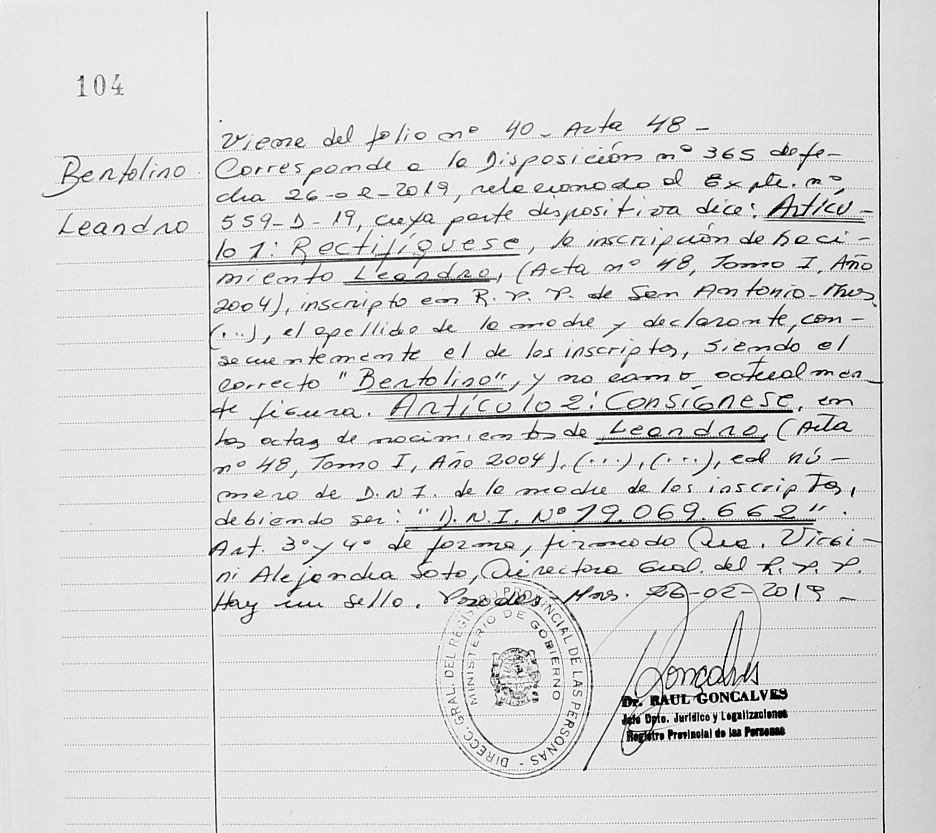 104
Bertolino
Leandro
Viene del folio nº 40 - Acta 48 -
Corresponde a la Disposición nº 365 de fe-
cha 26-02-2019, relacionado al Expte. nº
559-D-19, cuya parte dispositiva dice: Artícu-
lo 1: Rectifíquese, la inscripción de naci-
miento Leandro, (Acta nº 48, Tomo I, Año
2004), inscripto en R. P. P. de San Antonio - Mnes
(...), el apellido de la madre y declarante, con-
secuentemente el de los inscriptos, siendo el
correcto "Bertolino", y no como actualmen-
te figura. Artículo 2: Consígnese, en
las actas de nacimientos de Leandro, (Acta
nº 48, Tomo I, Año 2004), (...), (...), el nú-
mero de D.N.I. de la madre de los inscriptos,
debiendo ser: "D.N.I. Nº 19.069.662".
Art. 3º y 4º de forma, firmado Dra.
ni Alejandra Soto, Directora Gral. del R. P. P.
Hay un sello. Posadas, Mnes. 26-02-2019 -
DIRECC. GRAL. DEL REGISTRO PROVINCIAL DE LAS PERSONAS -
MINISTERIO DE GOBIERNO
Goncalves
Dr. RAUL GONCALVES
Jefe Dpto. Jurídico y Legalizaciones
Registro Provincial de las Personas